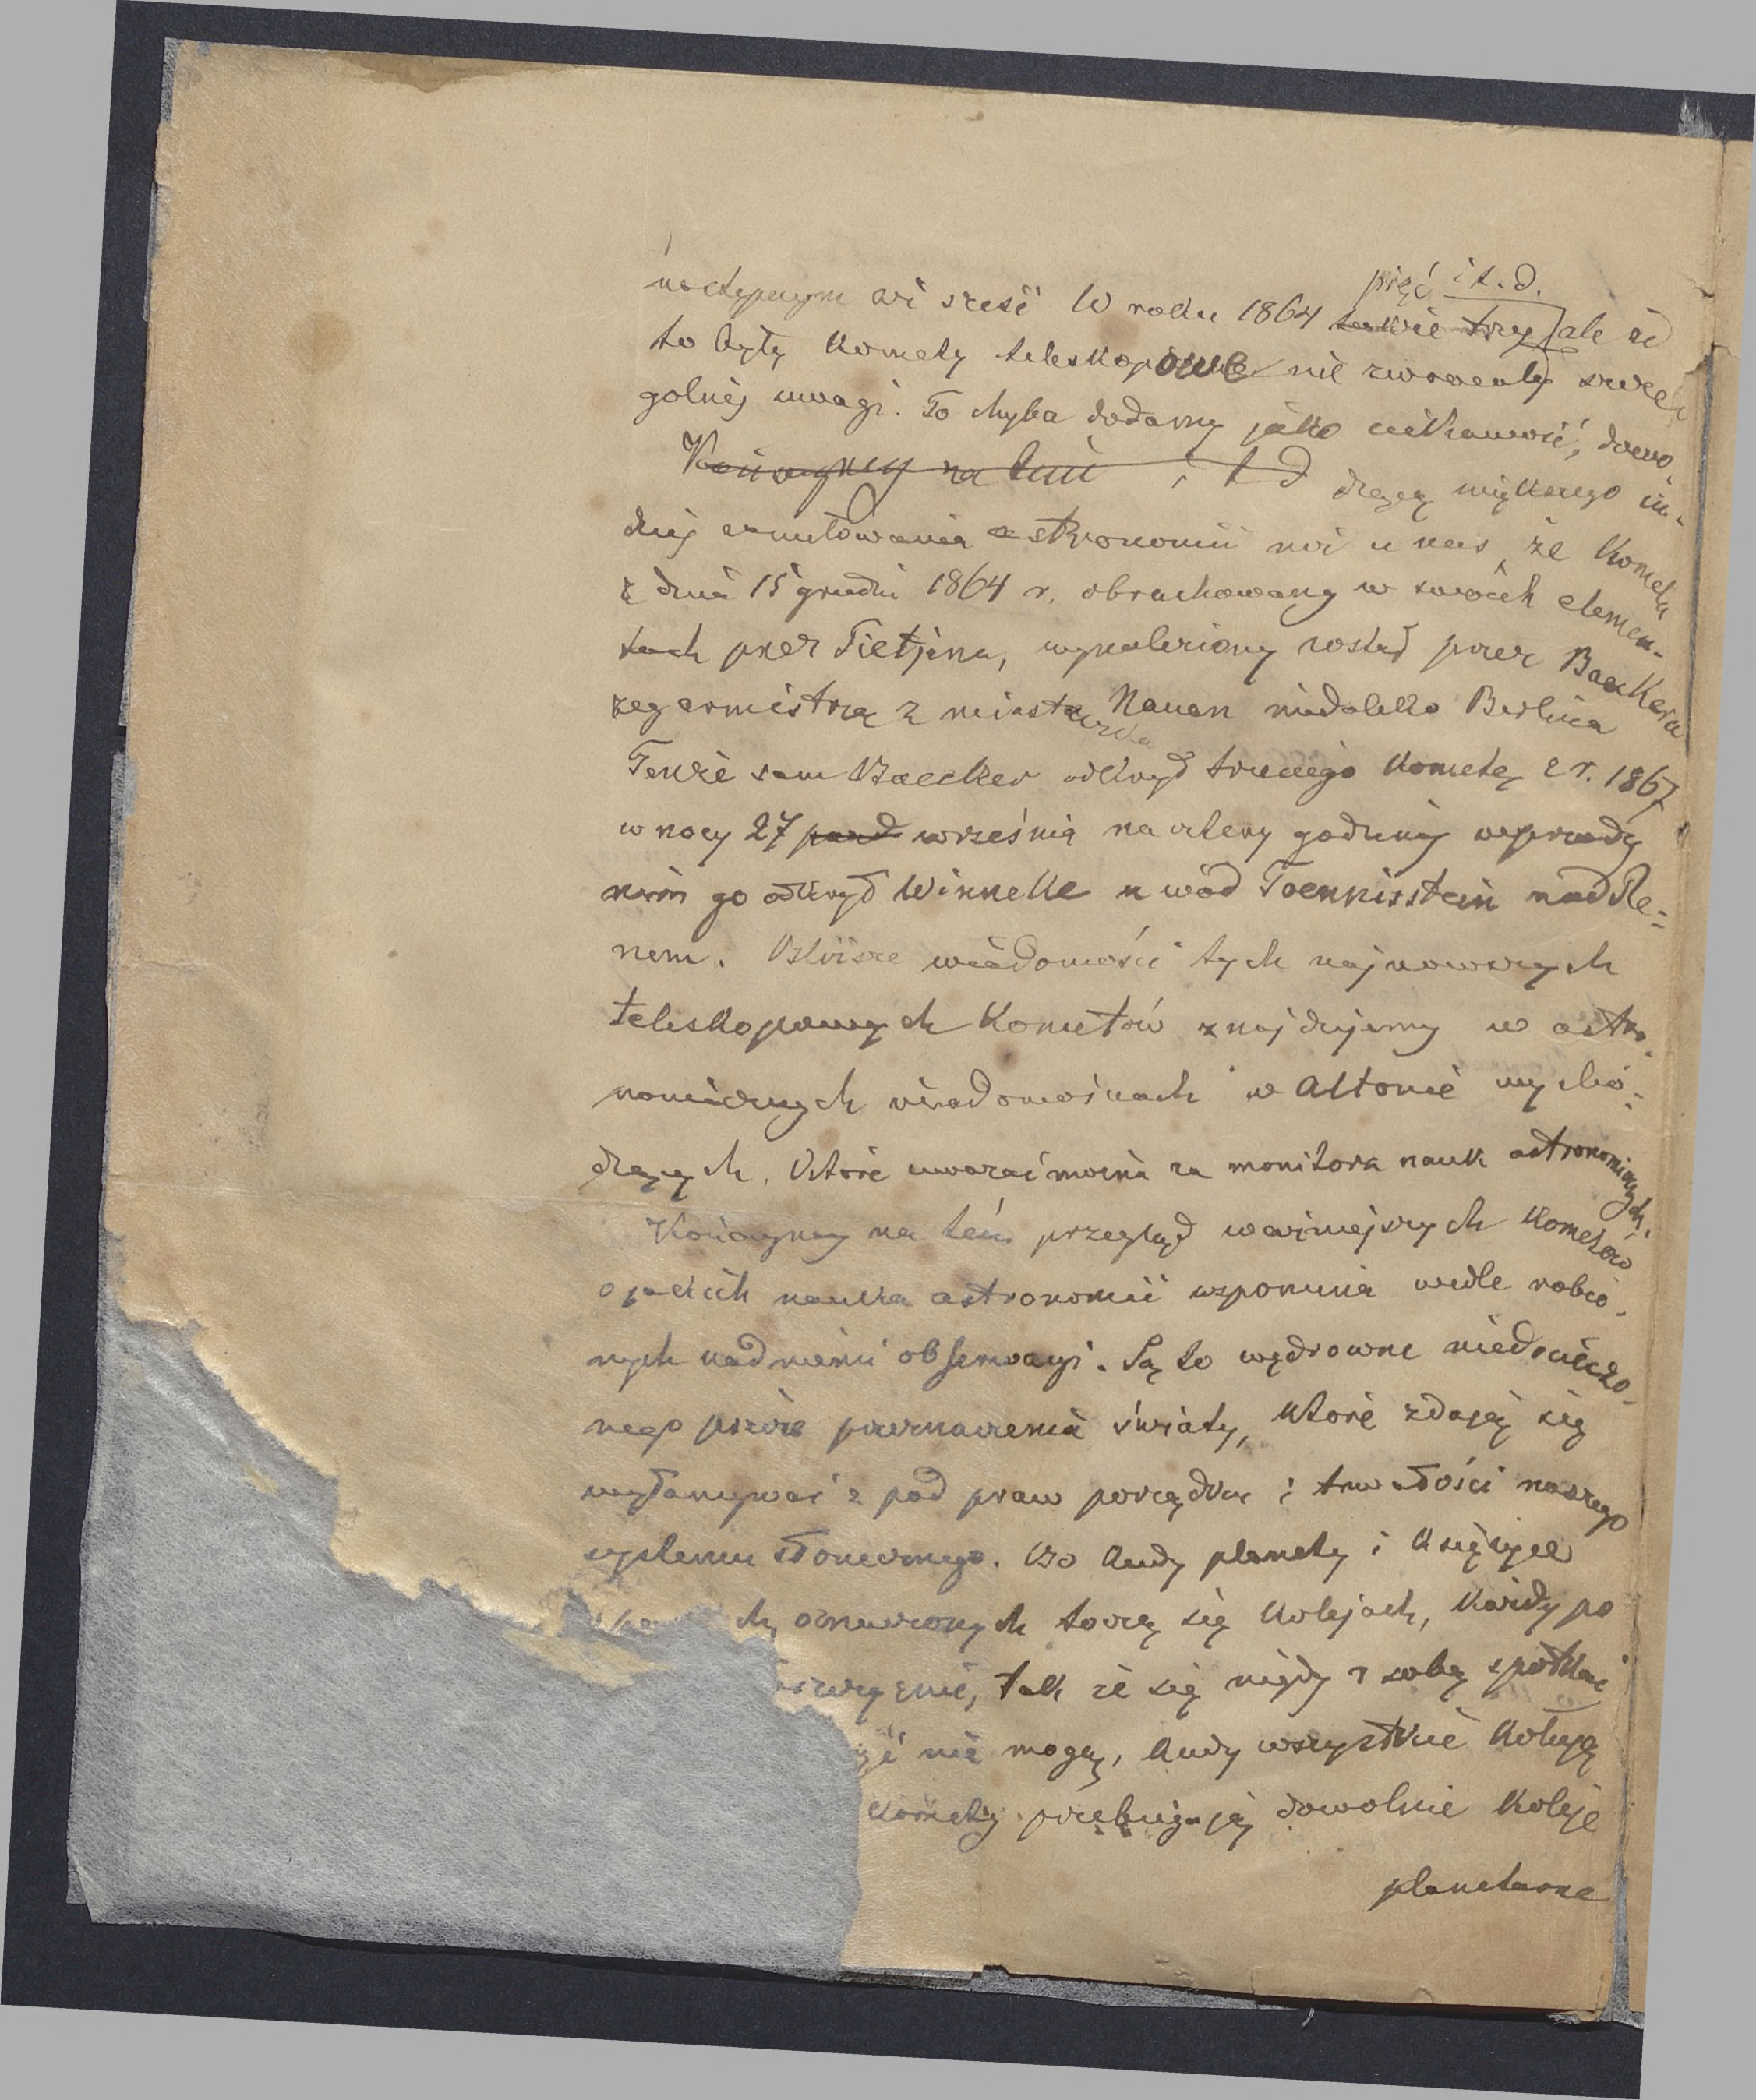 następnym aż sześć W roku 1864 takie trzy pięć i t. d. ale że
to były komety teleskopowe nie zwracały szcze
gólnéj uwagi. To chyba dodamy jako ciekawość, dowo
Kończymy na tém i t d dzącą większego in-
dziéj zamiłowania astronomii niż u nas, że kometa
z dnia 15 grudnia 1864 r. obrachowany w swoich elemen-
tach przez Tietjena, wynaleziony został przez Baekera
zegarmistrza z miasta Nauen niedaleko Berlina
Tenże sam Baecker odkrył trzeciego kometę z r. 1867
w nocy 27 września na cztery godziny wprzódy
nim go odkrył Winneke u wód Toennisstein nad Re-
nem. Bliższe wiadomości tych najnowszych
teleskopowych kometów znajdujemy w astro-
nomicznych wiadomościach w Altonie wycho-
dzących, które uważać można za monitora nauk astronomicznych.
Kończymy na tém przegląd ważniejszych kometów
o jakich nauka astronomii wspomina wedle robio-
nych nad niemi obserwacyi. Są to wędrowne niedocieczo-
nego przeznaczenia światy, które zdają się
wyłamywać z pod praw porządku i trwałości naszego
systemu słonecznego. Bo kiedy planety i księżyce
oznaczonych toczą się kolejach, każdy po
tak że się nigdy z sobą spotkać
nie mogą, kiedy wszystkie kołują
komety przebiegają dowolnie koleje
planetarne